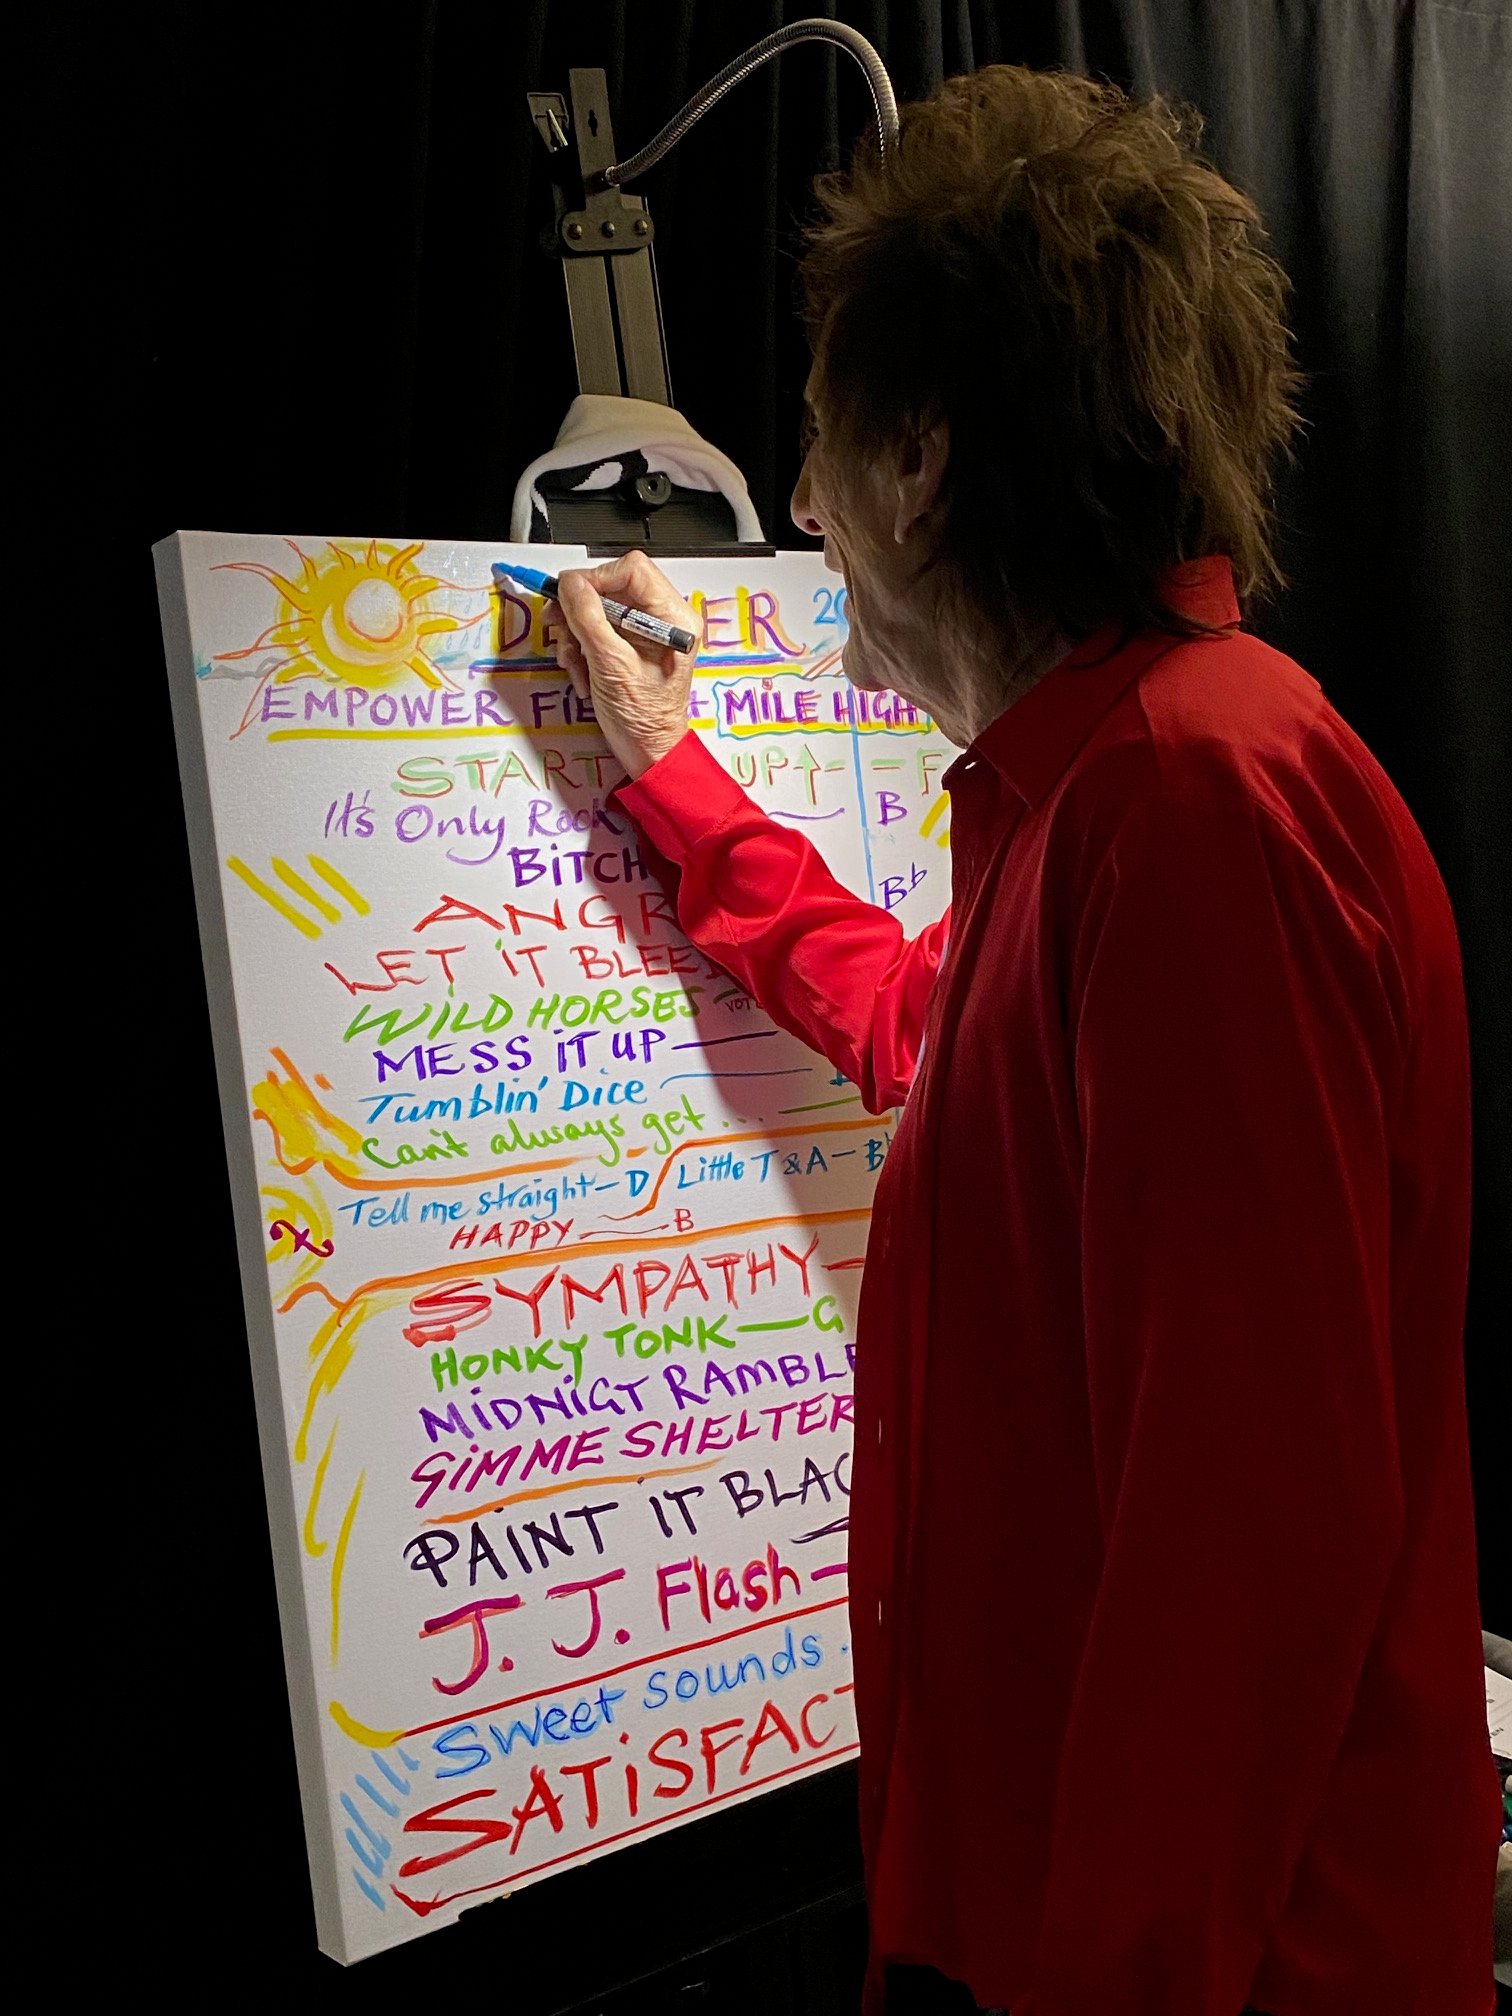 20
EMPOWER + MILE HIGH
START UP↑ - - F
It's Only Rock B
BiTCH
Bb
LET iT BLEED
WiLD HORSES
MESS iT UP
Tumblin' Dice
Can't always get ...
Tell me straight - D / Little T & A - B
HAPPY B
SYMPATHY -
HONKY TONK - G
MiDNiGT RAMBLE
GiMME SHELTER
PAiNT iT BLAC
J. J. Flash -
Sweet sounds .
SATiSFACT